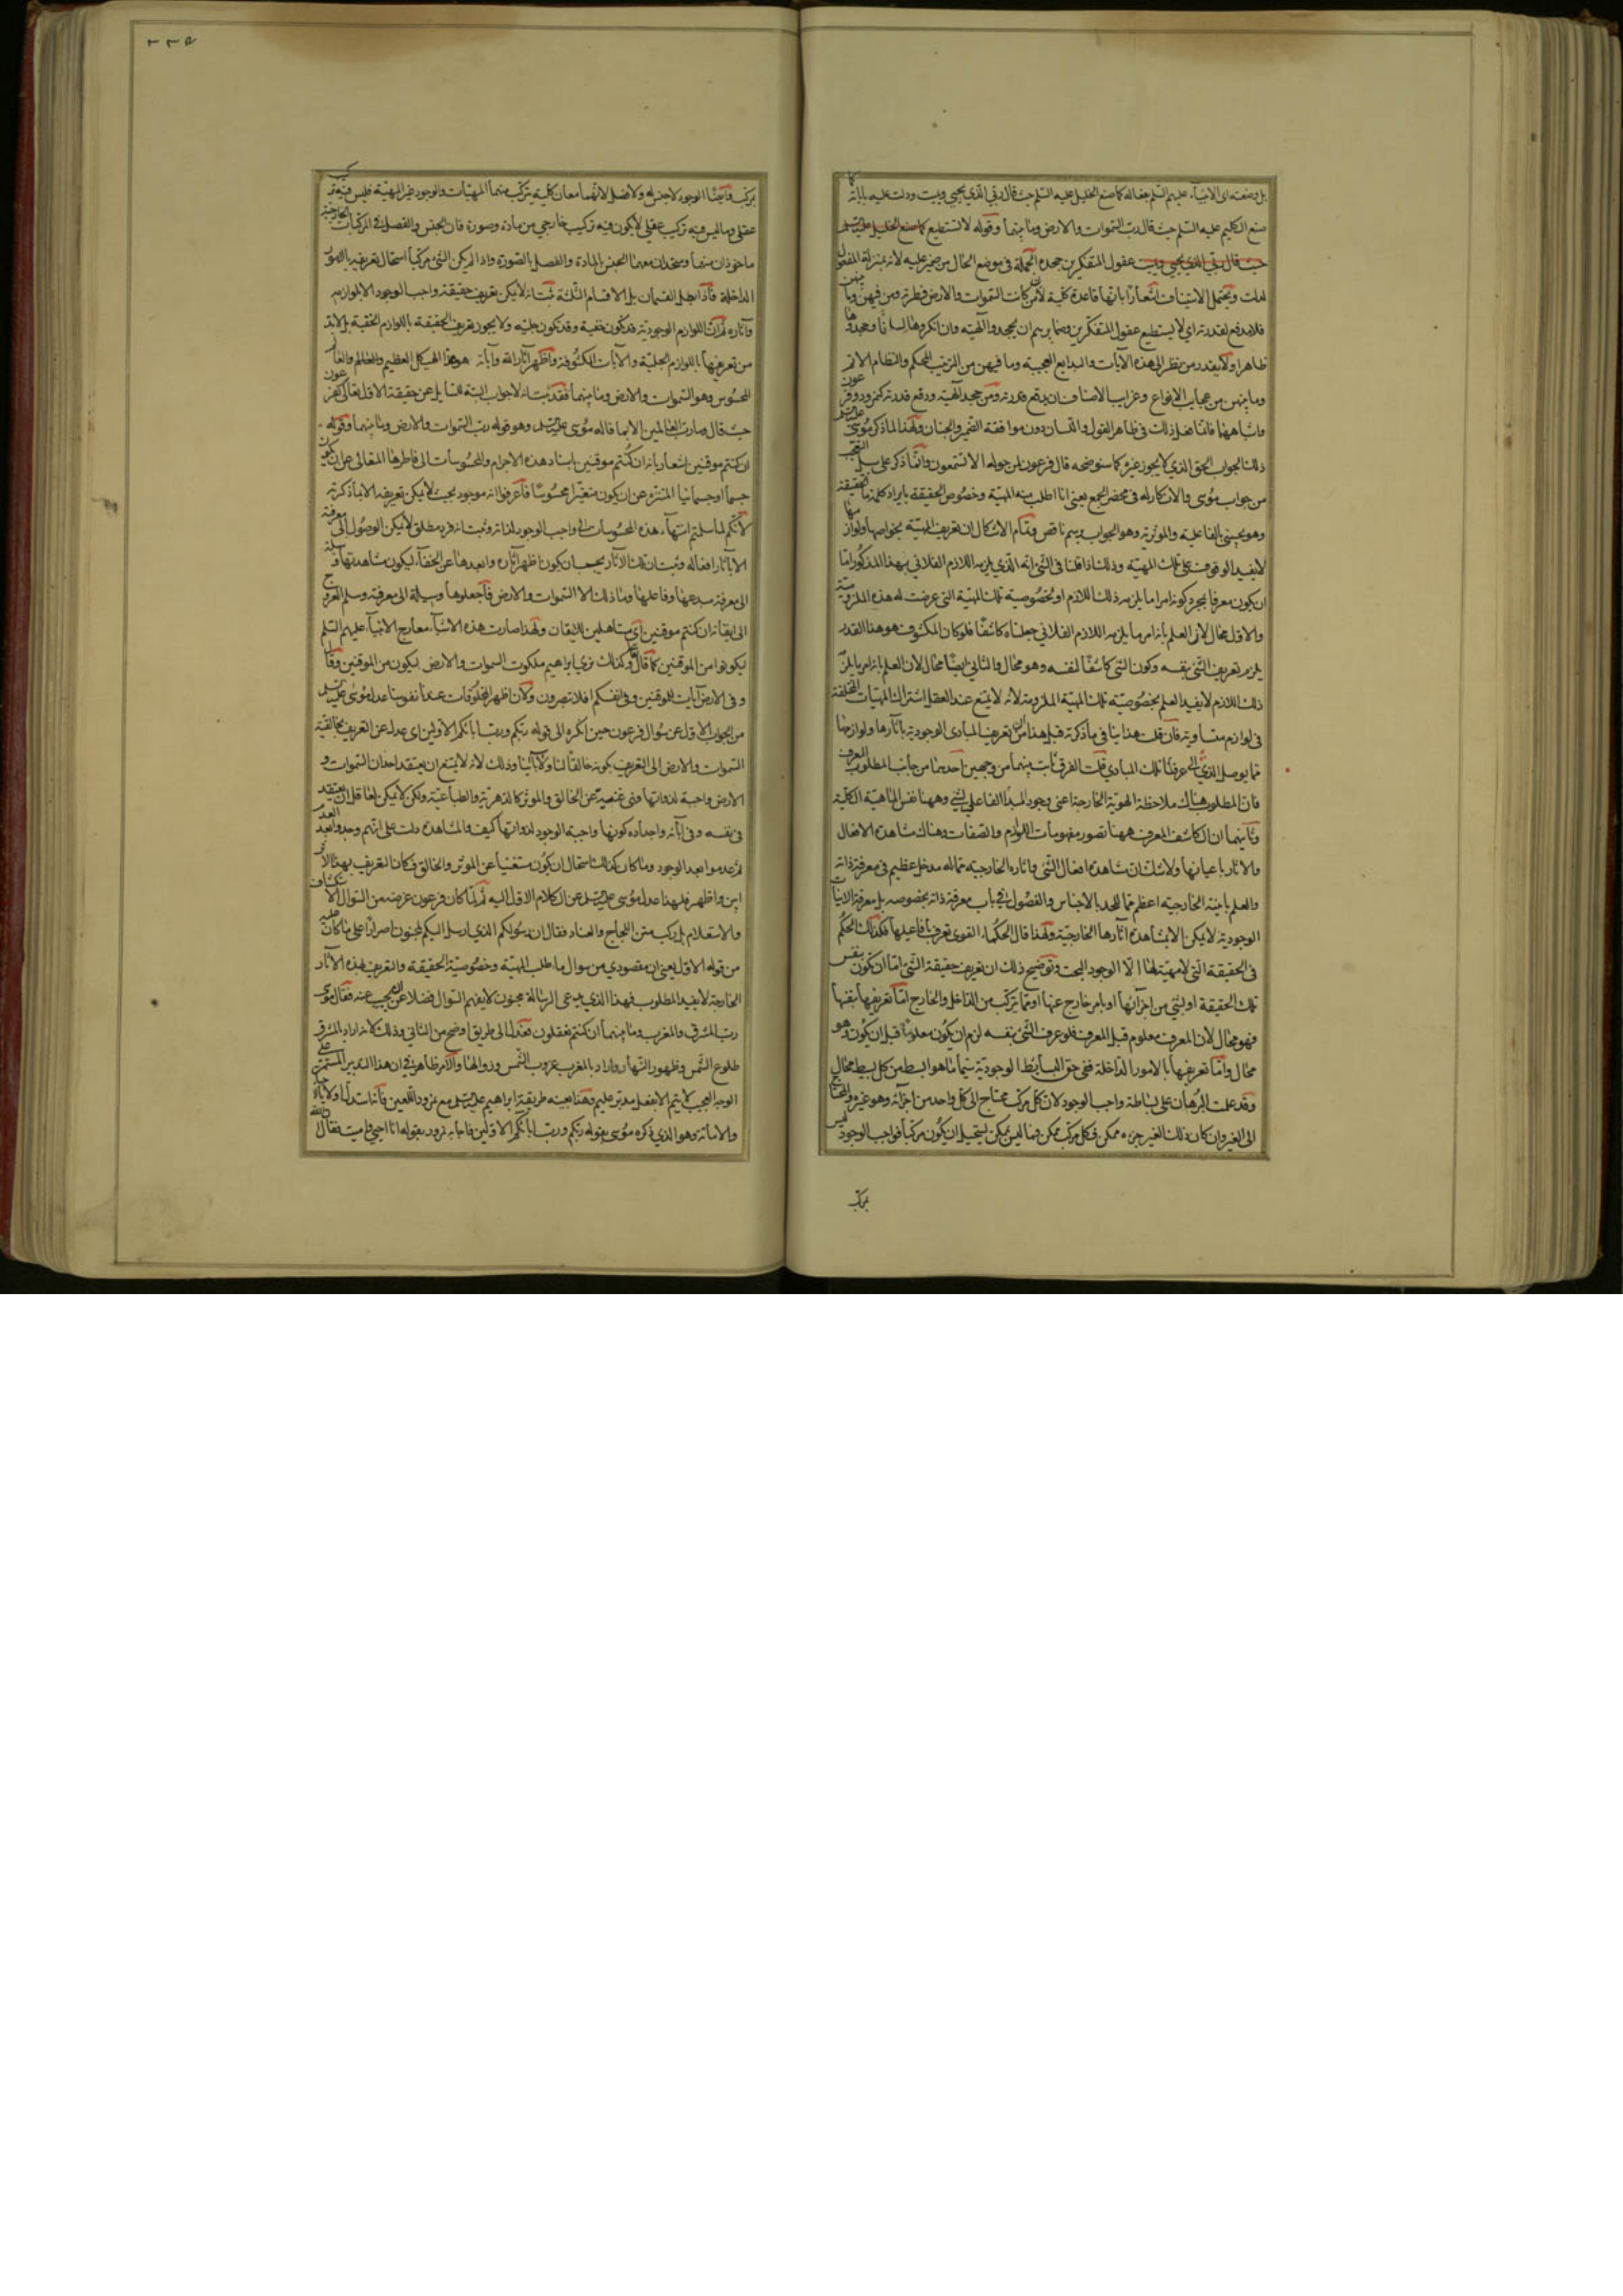 بل وصفته اى الانبيآء عليهم السلم بفعاله كما صنع الخليل عليه السلم حيث قال ربى الذي يحيى ويميت ودلت عليه باياته كما
صنع الكليم عليه السلم حيث قال رب السموات والارض وما بينهما وقوله لا تستطيع كما صنع الخليل عليه السلم
حيث قال ربى الذي يحيى ويميت عقول المتفكرين جحده الجملة فى موضع الحال من ضمير عليه لانه بمنزلة المفعول
لدلت ويحتمل الاستيناف اشعارًا بانها قاعدة كلية لان من كانت السموات والارض فطرته ومن فيهن وما بينهن
فلا مدفع لقدرته اي لا يستطيع عقول المتفكرين وضمايرهم ان يجحدوا آلهيته وان انكروها لسانًا وجحدوها
ظاهرا ولا يقدر من نظر الى هذه الآيات والبدايع العجيبة وما فيهن من الترتيب المحكم والنظام الاتم
وما بينهن من عجايب الانواع وغرايب الاصناف ان يدفع قدرته ومن جحد آلهيته ودفع قدرته كنمرود وفرعون
واشباههما فانما فعل ذلك فى ظاهر القول واللسان دون موافقة الضمير والجنان ولهذا لما ذكر موسى عليه السلم
ذلك الجواب الحق الذي لا يجوز غيره كما سنوضحه قال فرعون لمن حوله الا تستمعون وانما ذكر على سبيل التعجب
من جواب موسى والانكار له فى محضر الجمع يعنى انا اطلب منه المهية وخصوص الحقيقة بايراد كلمة ما الحقيقة
وهو يجيبنى بالفاعلية والمؤثرية وهو الجواب برسم ناقص وتمام الاشكال ان تعريف المهية بخواصها ولوازمها
لا يفيد الوقوف على تلك المهية وذلك اذا قلنا فى الشئ انه الذي يلزمه اللازم الفلاني فهذا المذكور اما
ان يكون معرفا بمجرد كونه امرا ما يلزمه ذلك اللازم او بخصوصية تلك المهية التى عرضت له هذه الملزومية
والاول محال لان العلم بانه امر ما يلزمه اللازم الفلاني جعلناه كاشفًا فلو كان المكشوف هو هذا القدر
يلزم تعريف الشئ بنفسه وكون الشئ كاشفًا لنفسه وهو محال والثاني ايضًا محال لان العلم بانه امر ما يلزمه
ذلك اللازم لا يفيد العلم بخصوصية تلك المهية الملزومة لانه لا يمتنع عند العقل اشتراك المهيات المختلفة
فى لوازم متساوية فان قلت هذا ينافى ما ذكرته قبل هذا من ان تعريف المبادى الوجودية بآثارها ولوازمها
مما يوصل الذي الى عرفنا تلك المبادي قلت الفرق ثابت بينهما من وجهين احدهما من جانب المطلوب المعرف
فان المطلوب هناك ملاحظة الهوية الخارجة اعنى وجود المبدأ الفاعلي لشئ وههنا نفس الماهية الكلية
وثانيهما ان الكاشف المعرف ههنا تصور مفهومات اللوازم والصفات وهناك مشاهدة الافعال
والاثار باعيانها ولا شك ان مشاهدة افعال الشئ واثاره الخارجية مما له مدخل عظيم فى معرفة ذاته
والعلم بانيته الخارجية اعظم مما للحد بالاجناس والفصول فى باب معرفة ذاته بخصوصه بل معرفة الانيات
الوجودية لا يمكن الا بمشاهدة آثارها الخارجية ولهذا قال الحكماء القوى تعرف بافاعيلها فكذلك الحكم
فى الحقيقة التى لا مهية لها الا الوجود البحت وتوضيح ذلك ان تعريف حقيقة الشئ اما ان يكون بنفس
تلك الحقيقة او بشئ من اجزآئها او بامر خارج عنها او مما يتركب من الداخل والخارج اما تعريفها بنفسها
فهو محال لان المعرف معلوم قبل المعرف فلو عرف الشئ بنفسه لزم ان يكون معلومًا قبل ان يكون وهو
محال واما تعريفها بالامور الداخلة ففي حق البسايط الوجودية سيما ما هو ابسط من كل بسيط محال
وقد علمت البرهان على بساطة واجب الوجود لان كل مركب محتاج الى كل واحد من اجزآئه وهو غيره والمحتاج
الى الغير وان كان ذلك الغير جزءه ممكن فكل مركب ممكن فما ليس بممكن يستحيل ان يكون مركبا فواجب الوجود ليس
بمركب
٣٣٥
بمركب وايضًا الوجود لا جنس له ولا فصل لانهما معان كلية يتركب منهما المهيات والوجود غير المهية فليس فيه تركيب
عقلي وما ليس فيه تركيب عقلي لا يكون فيه تركيب خارجي من مادة وصورة فان الجنس والفصل فى المركبات الخارجية
ماخوذان منهما ومتحدان معهما الجنس بالمادة والفصل بالصورة واذا لم يكن الشئ مركبا استحال تعريفه بالامور
الداخلة فاذا بطل القسمان بل الاقسام الثلثة ثبت انه لا يمكن تعريف حقيقة واجب الوجود الا بلوازمه
وآثاره ثم ان اللوازم الوجودية قد تكون خفية وقد تكون جلية ولا يجوز تعريف الحقيقة باللوازم الخفية بل لابد
من تعريفها باللوازم الجلية والآيات المكشوفة واظهر آثار الله وآياته هو هذا الهيكل العظيم والعالم
المحسوس وهو السموات والارض وما بينهما فقد ثبت انه لا جواب البتة للسايل عن حقيقة الاول تعالى كفرعون
حيث قال وما رب العالمين الا بما قاله موسى عليه السلم وهو قوله رب السموات والارض وما بينهما وقوله
ان كنتم موقنين اشعار بانه ان كنتم موقنين باسناد هذه الاجرام والمحسوسات الى فاطرها المتعالى عن ان يكون
جسما او جسمانيا المنزه عن ان يكون متغيرا محسوسًا فاعرفوا انه موجود بحيث لا يمكن تعريفه الا بما ذكرته
لانكم لما سلمتم انتهآء هذه المحسوسات الى واجب الوجود لذاته وثبت انه فرد مطلق لا يمكن الوصول الى معرفته
الا بآثار افعاله وثبت ان تلك الآثار يجب ان يكون اظهر آثاره وابعدها عن الخفآء ليكون مشاهدتها وسيلة
الى معرفة مبدعها وفاعلها وما ذلك الا السموات والارض فاجعلوها وسيلة الى معرفته وسلم العروج
الى ايقانه ان كنتم موقنين اي متاهلين للايقان ولهذا صارت هذه الاشيآء معارج الانبيآء عليهم السلم
ليكونوا من الموقنين كما قال وكذلك نرى ابراهيم ملكوت السموات والارض ليكون من الموقنين وقال
وفى الارض آيات للموقنين وفى انفسكم افلا تبصرون ولان اظهر المخلوقات عندنا نفوسنا عدل موسى عليه السلم
من الجواب الاول عن سؤال فرعون حين انكره الى قوله ربكم ورب ابآئكم الاولين اى عدل عن التعريف بخالقية
السموات والارض الى التعريف بكونه خالقًا لنا ولآبآئنا وذلك لانه لا يمتنع ان يعتقد احد ان السموات و
الارض واجبة لذواتها فهى غنية عن الخالق والموثر كالدهرية والطباعية ولكن لا يمكن لعاقل ان يعتقد
فى نفسه وفى آبآئه واجداده كونها واجبة الوجود لذواتها كيف والمشاهدة دلت على انهم وجدوا بعد العدم
ثم عدموا بعد الوجود وما كان كذلك استحال ان يكون مستغنيا عن الموثر والخالق فكان التعريف بهذا الاثر
ابين واظهر فلهذا عدل موسى عليه السلم عن الكلام الاول اليه ثم لما كان فرعون غرضه من السؤال الاستكشاف
والاستعلام بل ركب متن اللجاج والعناد فقال ان رسولكم الذي ارسل اليكم لمجنون اصرارًا على ما كان عليه
من قوله الاول يعنى ان مقصودي من سوال ما طلب المهية وخصوصية الحقيقة والتعريف بهذه الآثار
الخارجة لا يفيد المطلوب فهذا الذي يدعى الرسالة مجنون لا يفهم السؤال فضلا عن ان يجيب عنه فقال موسى
رب المشرق والمغرب وما بينهما ان كنتم تعقلون فعدل الى طريق اوضح من الثاني وذلك لانه اراد بالمشرق
طلوع الشمس وظهور النهار واراد بالمغرب غروب الشمس وزوالها والامر ظاهر فى ان هذا التدبير المستمر على
الوجه العجيب لا يتم الا بفعل مدبر عليم وهذا بعينه طريقة ابراهيم عليه السلم مع نمرود اللعين فانه استدل اولا بالاحياء
والاماتة وهو الذي ذكره موسى بقوله ربكم ورب ابآئكم الاولين فاجابه نمرود بقوله انا احيى واميت فقال